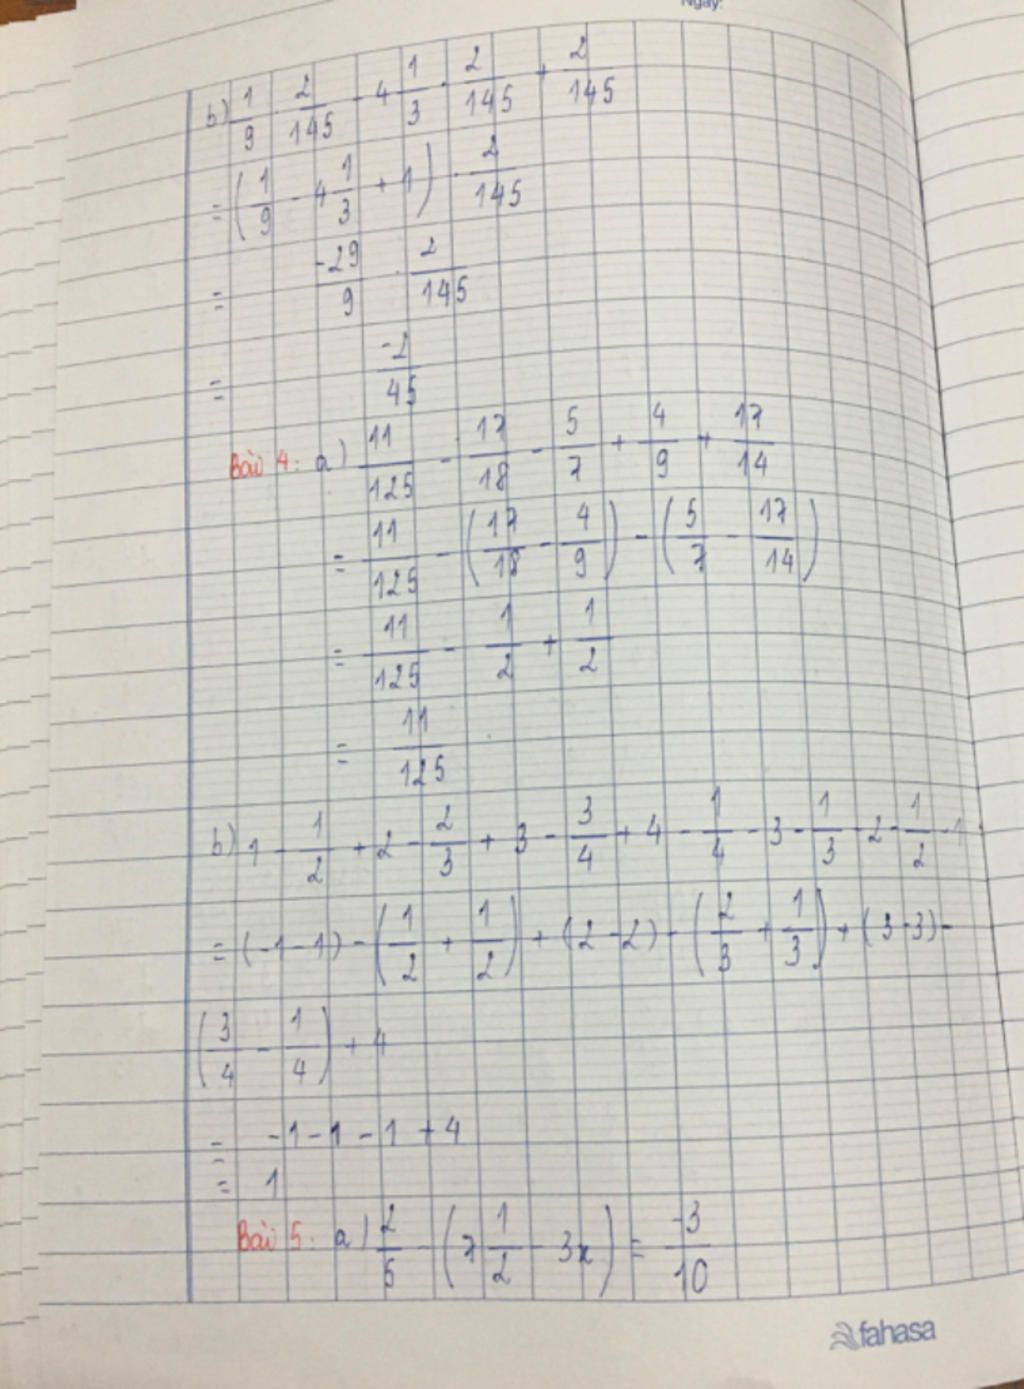 Ngày:
b) 1/9 · 2/145 - 4 1/3 · 2/145 + 2/145
= (1/9 - 4 1/3 + 1) · 2/145
= -29/9 · 2/145
= -2/45
Bài 4: a) 11/125 - 17/18 - 5/7 + 4/9 + 17/14
= 11/125 - (17/18 - 4/9) - (5/7 - 17/14)
= 11/125 - 1/2 + 1/2
= 11/125
b) 1 - 1/2 + 2 - 2/3 + 3 - 3/4 + 4 - 1/4 - 3 - 1/3 - 2 - 1/2 - 1
= (-1 - 1) - (1/2 + 1/2) + (2 - 2) - (2/3 + 1/3) + (3 - 3) -
(3/4 - 1/4) + 4
= -1 - 1 - 1 + 4
= 1
Bài 5: a) 2/5 - (7 1/2 - 3x) = -3/10
fahasa